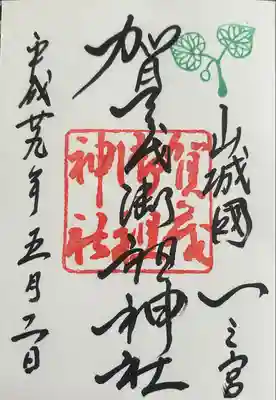 山城國一之宮
賀茂御祖神社
賀茂御祖神社
平成廿九年五月二日